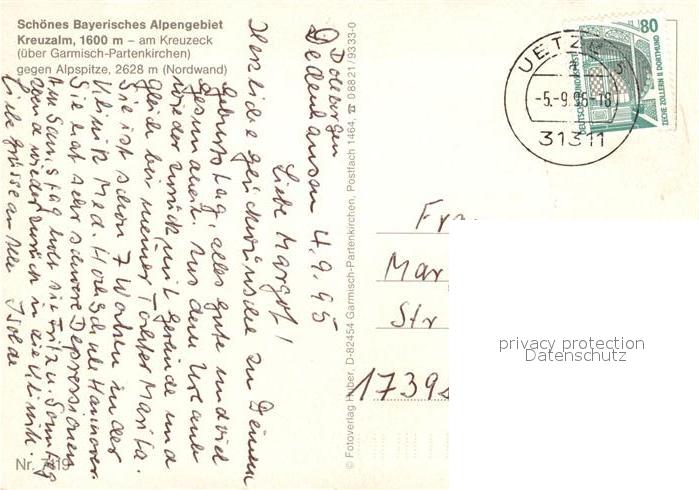 Schönes Bayerisches Alpengebiet
Kreuzalm, 1600 m – am Kreuzeck
(über Garmisch-Partenkirchen)
gegen Alpspitze, 2628 m (Nordwand)
Dollbergen
Dedenhausen 4.9.95
Liebe Margot!
Herzliche Glückwünsche zu Deinem
Geburtstag, alles gute und viel
Gesundheit. Aus dem Urlaub
wieder zurück, mit Gerlinde und
gleich bei meiner Tochter Marita.
Sie ist schon 7 Wochen in der
Klinik Med. Hochschule Hannover.
Sie hat sehr schwere Depressionen
Am Samstag holt sie Fritz u. Sonntag
abend wieder zurück in die Klinik.
Liebe Grüsse an alle Isolde
Nr. 7419
© Fotoverlag Huber, D-82454 Garmisch-Partenkirchen, Postfach 1464, ☎ 08821/9333-0
UETZE
-5.-9.95-18
31311
80
DEUTSCHE BUNDESPOST
ZECHE ZOLLERN II DORTMUND
Fr
Mar
Str
1739
privacy protection
Datenschutz